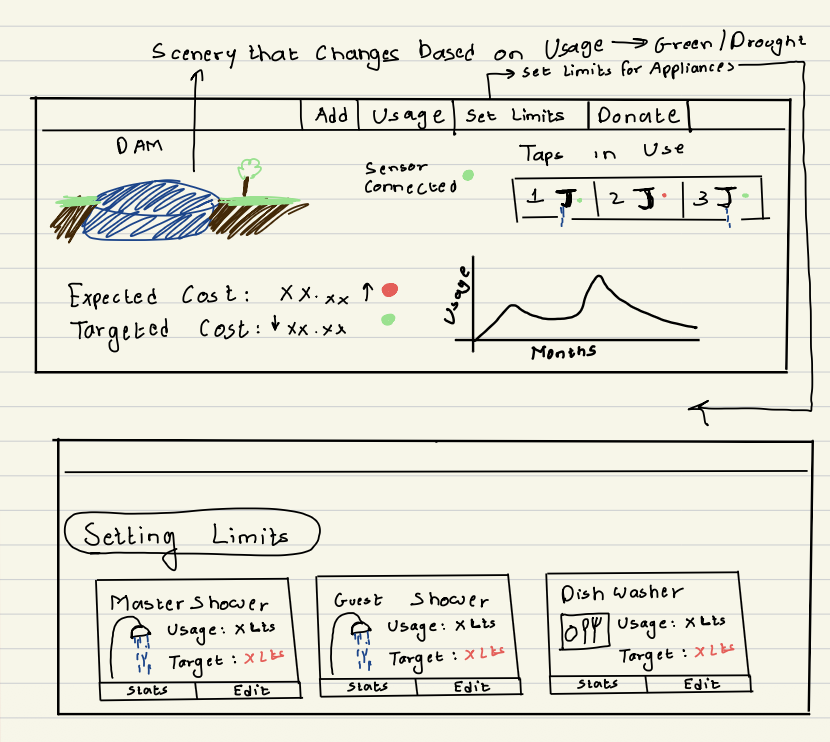 Scenery that Changes based on Usage → Green/Drought
→ Set Limits for Appliances
Add Usage Set Limits Donate
DAM
Sensor
Connected
Taps in Use
1 2 3
Expected Cost: XX.xx ↑
Targeted Cost: ↓ xx.xx
Usage
Months
Setting Limits
Master Shower
Usage: X Lts
Target: X Lts
Stats Edit
Guest Shower
Usage: X Lts
Target: X Lts
Stats Edit
Dish Washer
Usage: X Lts
Target: X Lts
Stats Edit